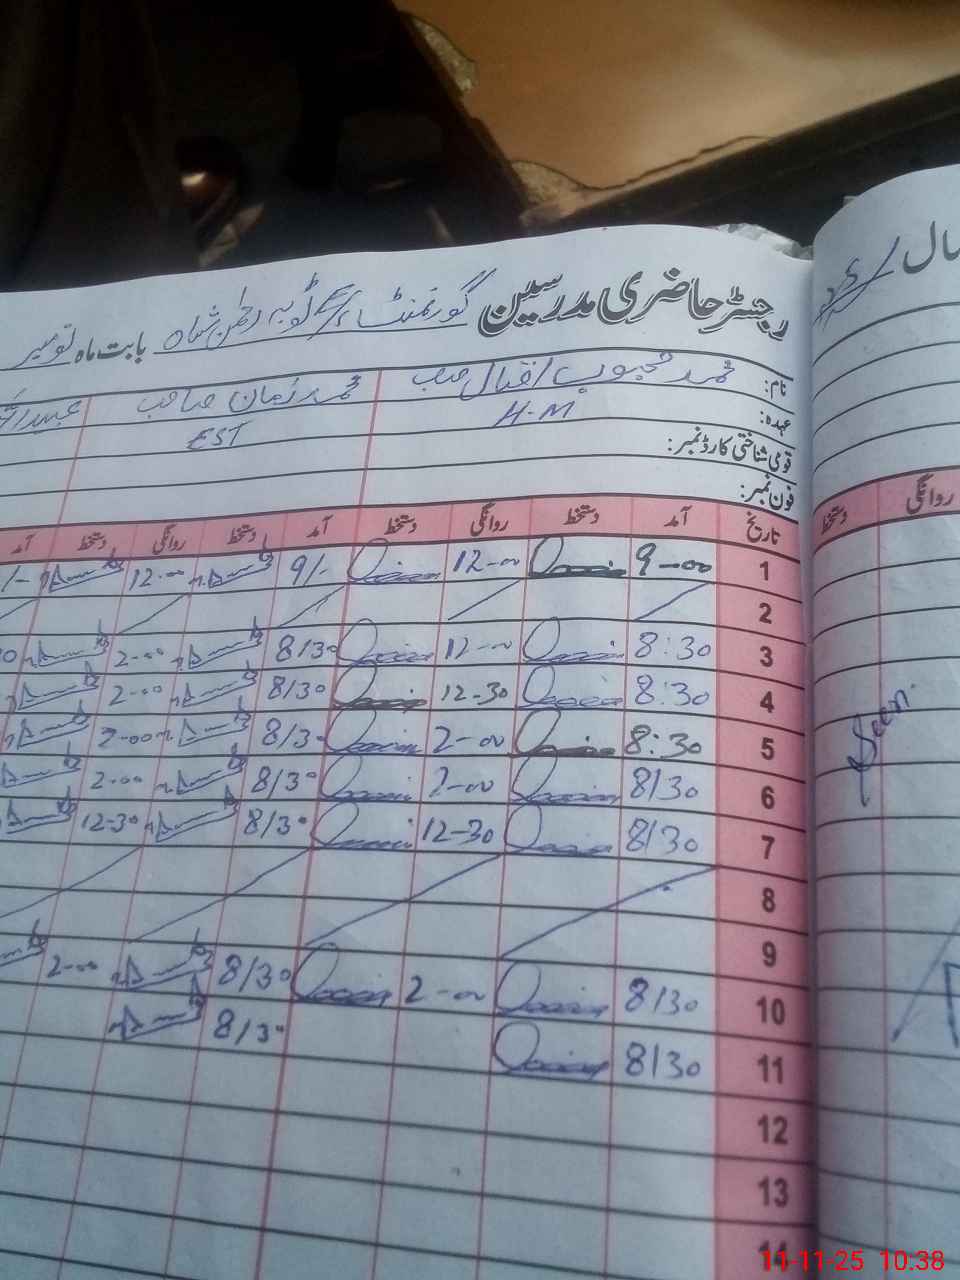 رجسٹر حاضری مدرسین گورنمنٹ ٹوبہ رحمٰن شاہ بابت ماہ نومبر
نام: محمد محبوب اقبال صاحب محمد زمان صاحب
عہدہ: H-M EST
قومی شناختی کارڈ نمبر:
فون نمبر:
تاریخ آمد دستخط روانگی دستخط آمد دستخط روانگی دستخط آمد
1 9-00 12-00 9/- 12-00
2
3 8:30 12-00 8/30 2-00
4 8:30 12-30 8/30 2-00
5 8:30 2-00 8/30 2-00
6 8/30 2-00 8/30 2-00
7 8/30 12-30 8/30 12-30
8
9
10 8/30 2-00 8/30 2-00
11 8/30 8/30
12
13
14
سال
روانگی دستخط
Seen.
11-11-25 10:38